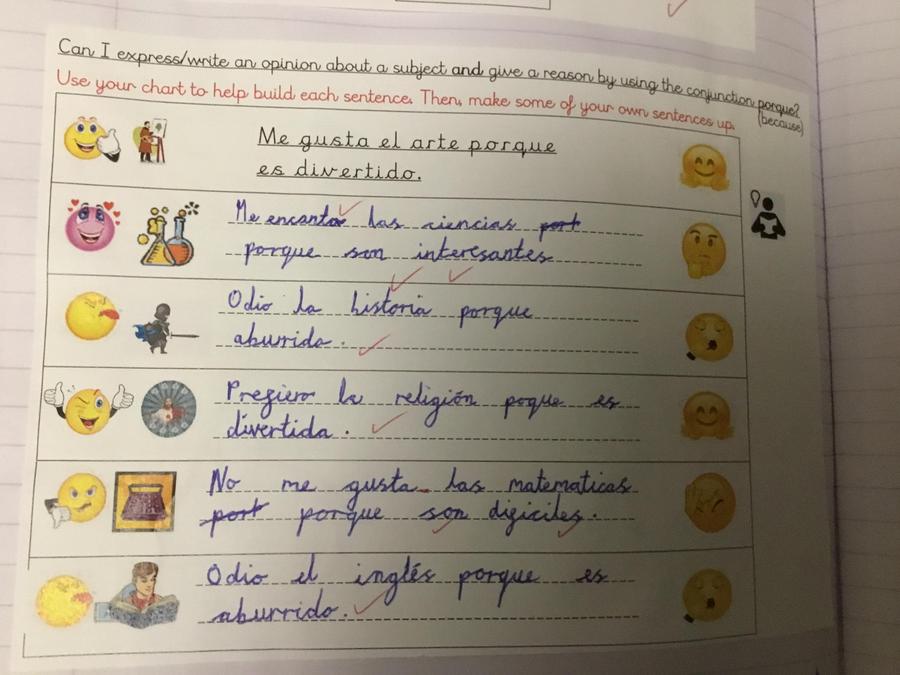 Can I express/write an opinion about a subject and give a reason by using the conjunction porque?
(because)
Use your chart to help build each sentence. Then, make some of your own sentences up.
Me gusta el arte porque
es divertido.
Me encanta las ciencias port
porque son interesantes
Odio la historia porque
aburrida.
Prefiero la religión poque es
divertida.
No me gusta las matematicas
port porque son dificiles.
Odio el inglés porque es
aburrido.